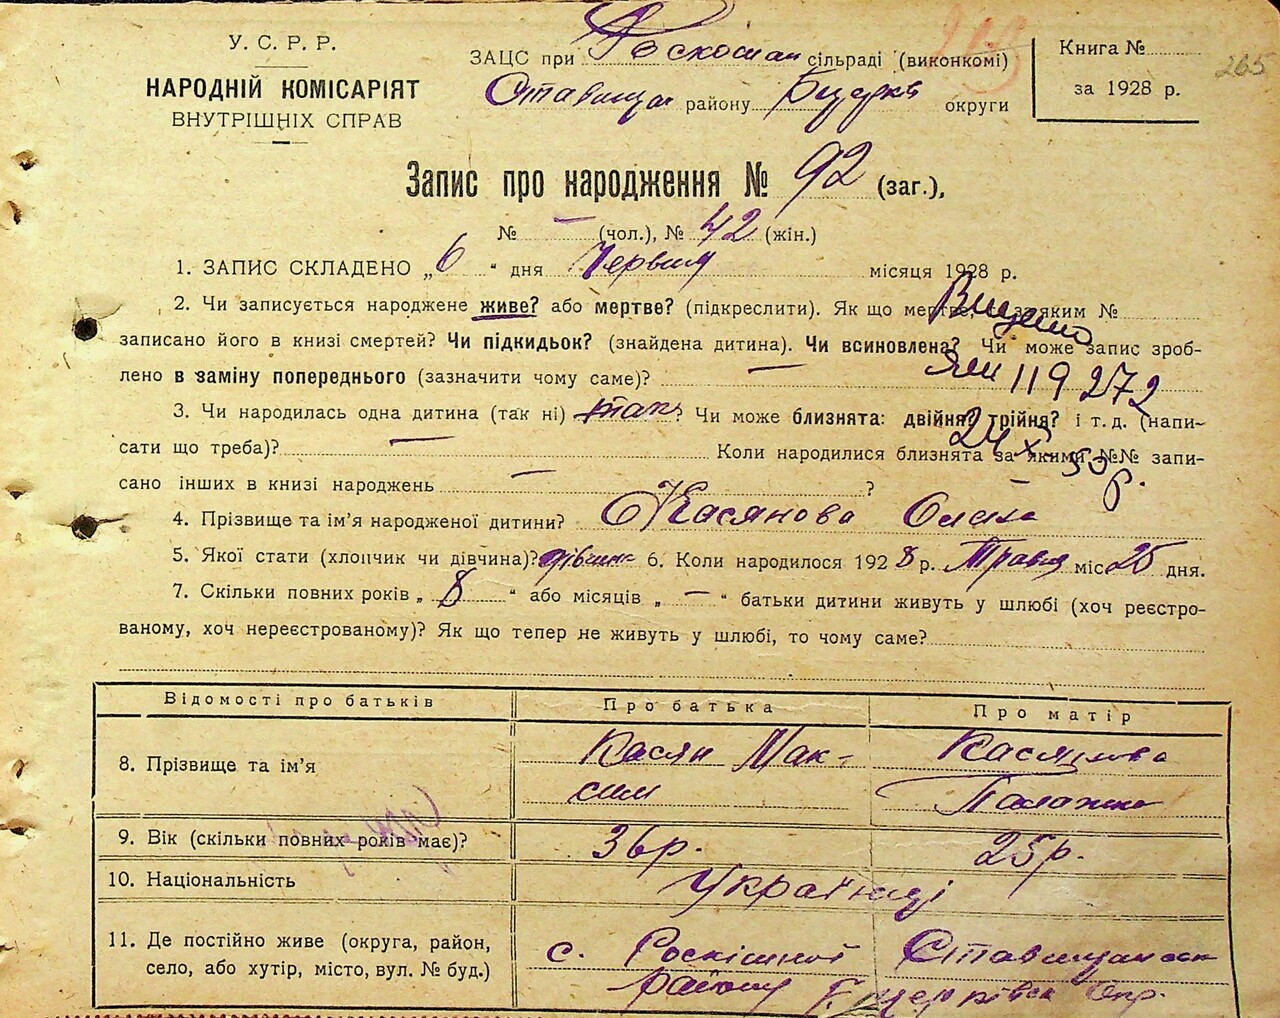 У. С. Р. Р.
НАРОДНІЙ КОМІСАРІЯТ
ВНУТРІШНІХ СПРАВ
ЗАЦС при Роскошан сільраді (виконкомі)
Ставищан району Б.Церкв округи
Книга №
за 1928 р.
265
Запис про народження № 92 (заг.),
№ — (чол.), № 42 (жін.)
1. ЗАПИС СКЛАДЕНО „6“ дня Червня місяця 1928 р.
2. Чи записується народжене живе? або мертве? (підкреслити). Як що мертве, за яким №
записано його в книзі смертей? Чи підкидьок? (знайдена дитина). Чи всиновлена? Чи може запис зроб-
лено в заміну попереднього (зазначити чому саме)? —
Видано
119272
24 X 50 р.
3. Чи народилась одна дитина (так ні) так? Чи може близнята: двійня? трійня? і т. д. (напи-
сати що треба)? — Коли народилися близнята за якими №№ запи-
сано інших в книзі народжень — ?
4. Прізвище та ім’я народженої дитини? Касянова Олена
5. Якої стати (хлопчик чи дівчина)? дівчин 6. Коли народилося 1928 р. Травня міс. 25 дня.
7. Скільки повних років „8“ або місяців „—“ батьки дитини живуть у шлюбі (хоч реєстро-
ваному, хоч нереєстрованому)? Як що тепер не живуть у шлюбі, то чому саме?
Відомості про батьків Про батька Про матір
8. Прізвище та ім’я Касян Мак-
сим Касянова
Палажка
9. Вік (скільки повних років має)? 36р. 25р.
10. Національність Українці
11. Де постійно живе (округа, район,
село, або хутір, місто, вул. № буд.)
с. Роскішної Ставищанськ
району Б.Церківськ Окр.